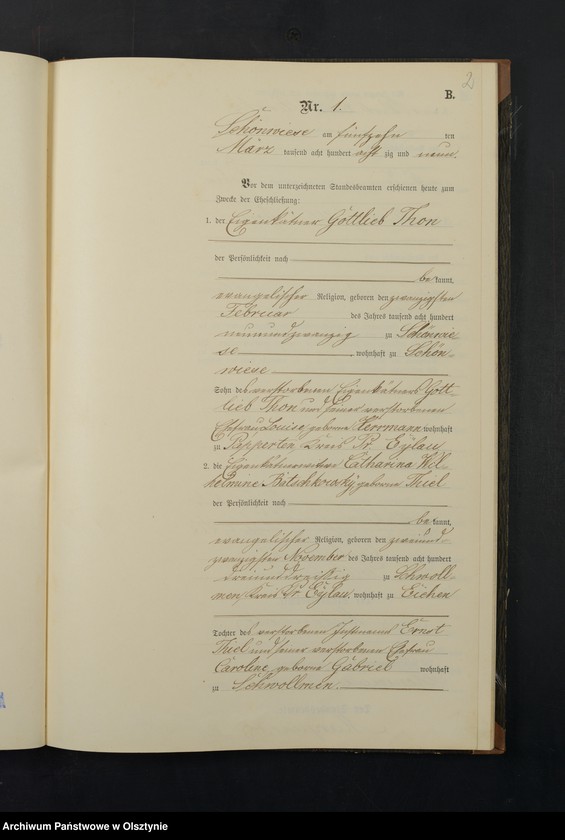 2
B.
Nr. 1.
Schönwiese am fünfzehn ten
März tausend acht hundert acht zig und neun.
Vor dem unterzeichneten Standesbeamten erschienen heute zum
Zwecke der Eheschließung:
1. der Eigenkätner Gottlieb Thon
der Persönlichkeit nach
be kannt,
evangelischer Religion, geboren den zwanzigsten
Februar des Jahres tausend acht hundert
neunundzwanzig zu Schönwie-
se, wohnhaft zu Schön-
wiese
Sohn des verstorbenen Eigenkätners Gott-
lieb Thon und seiner verstorbenen
Ehefrau Louise, geborne Herrmann wohnhaft
zu Pepperten, Kreis Pr. Eylau
2. die Eigenkätnerwitwe Catharina Wil-
helmine geborne Thiel
der Persönlichkeit nach
be kannt,
evangelischer Religion, geboren den zweiund-
zwanzigsten November des Jahres tausend acht hundert
dreiunddreißig zu Schwoll-
men, Kreis Pr. Eylau, wohnhaft zu Eichen
Tochter des verstorbenen Instmanns Ernst
Thiel und seiner verstorbenen Ehefrau
Caroline, geborne Gabriel wohnhaft
zu Schwollmen.
Archiwum Państwowe w Olsztynie